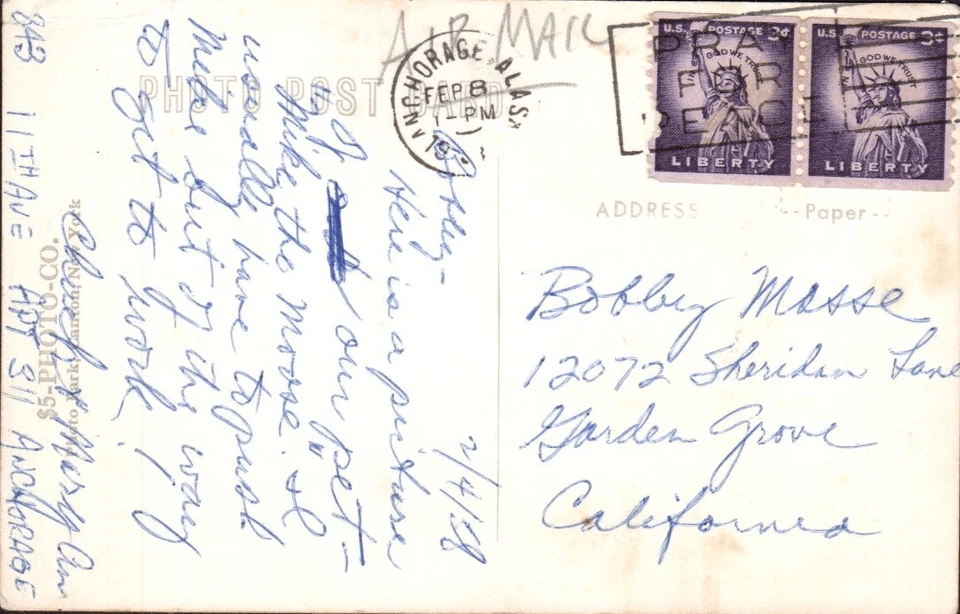 AIR MAIL
ANCHORAGE, ALAS.
FEB 8
1-PM
U.S. POSTAGE 3¢
IN GOD WE TRUST
LIBERTY
U.S. POSTAGE 3¢
IN GOD WE TRUST
LIBERTY
PRAY
FOR
PEACE
PHOTO POST CARD
ADDRESS
Paper
2/4/58
Bobby-
Here is a picture
of our pet-
"Mike the Moose." I
usually have to push
Mike out of the way
to get to work!
Chuck & Mary Ann
843 11TH AVE APT 311 ANCHORAGE
$5-PHOTO-CO.
Canton, New York
Bobby Masse
12072 Sheridan Lane
Garden Grove
California